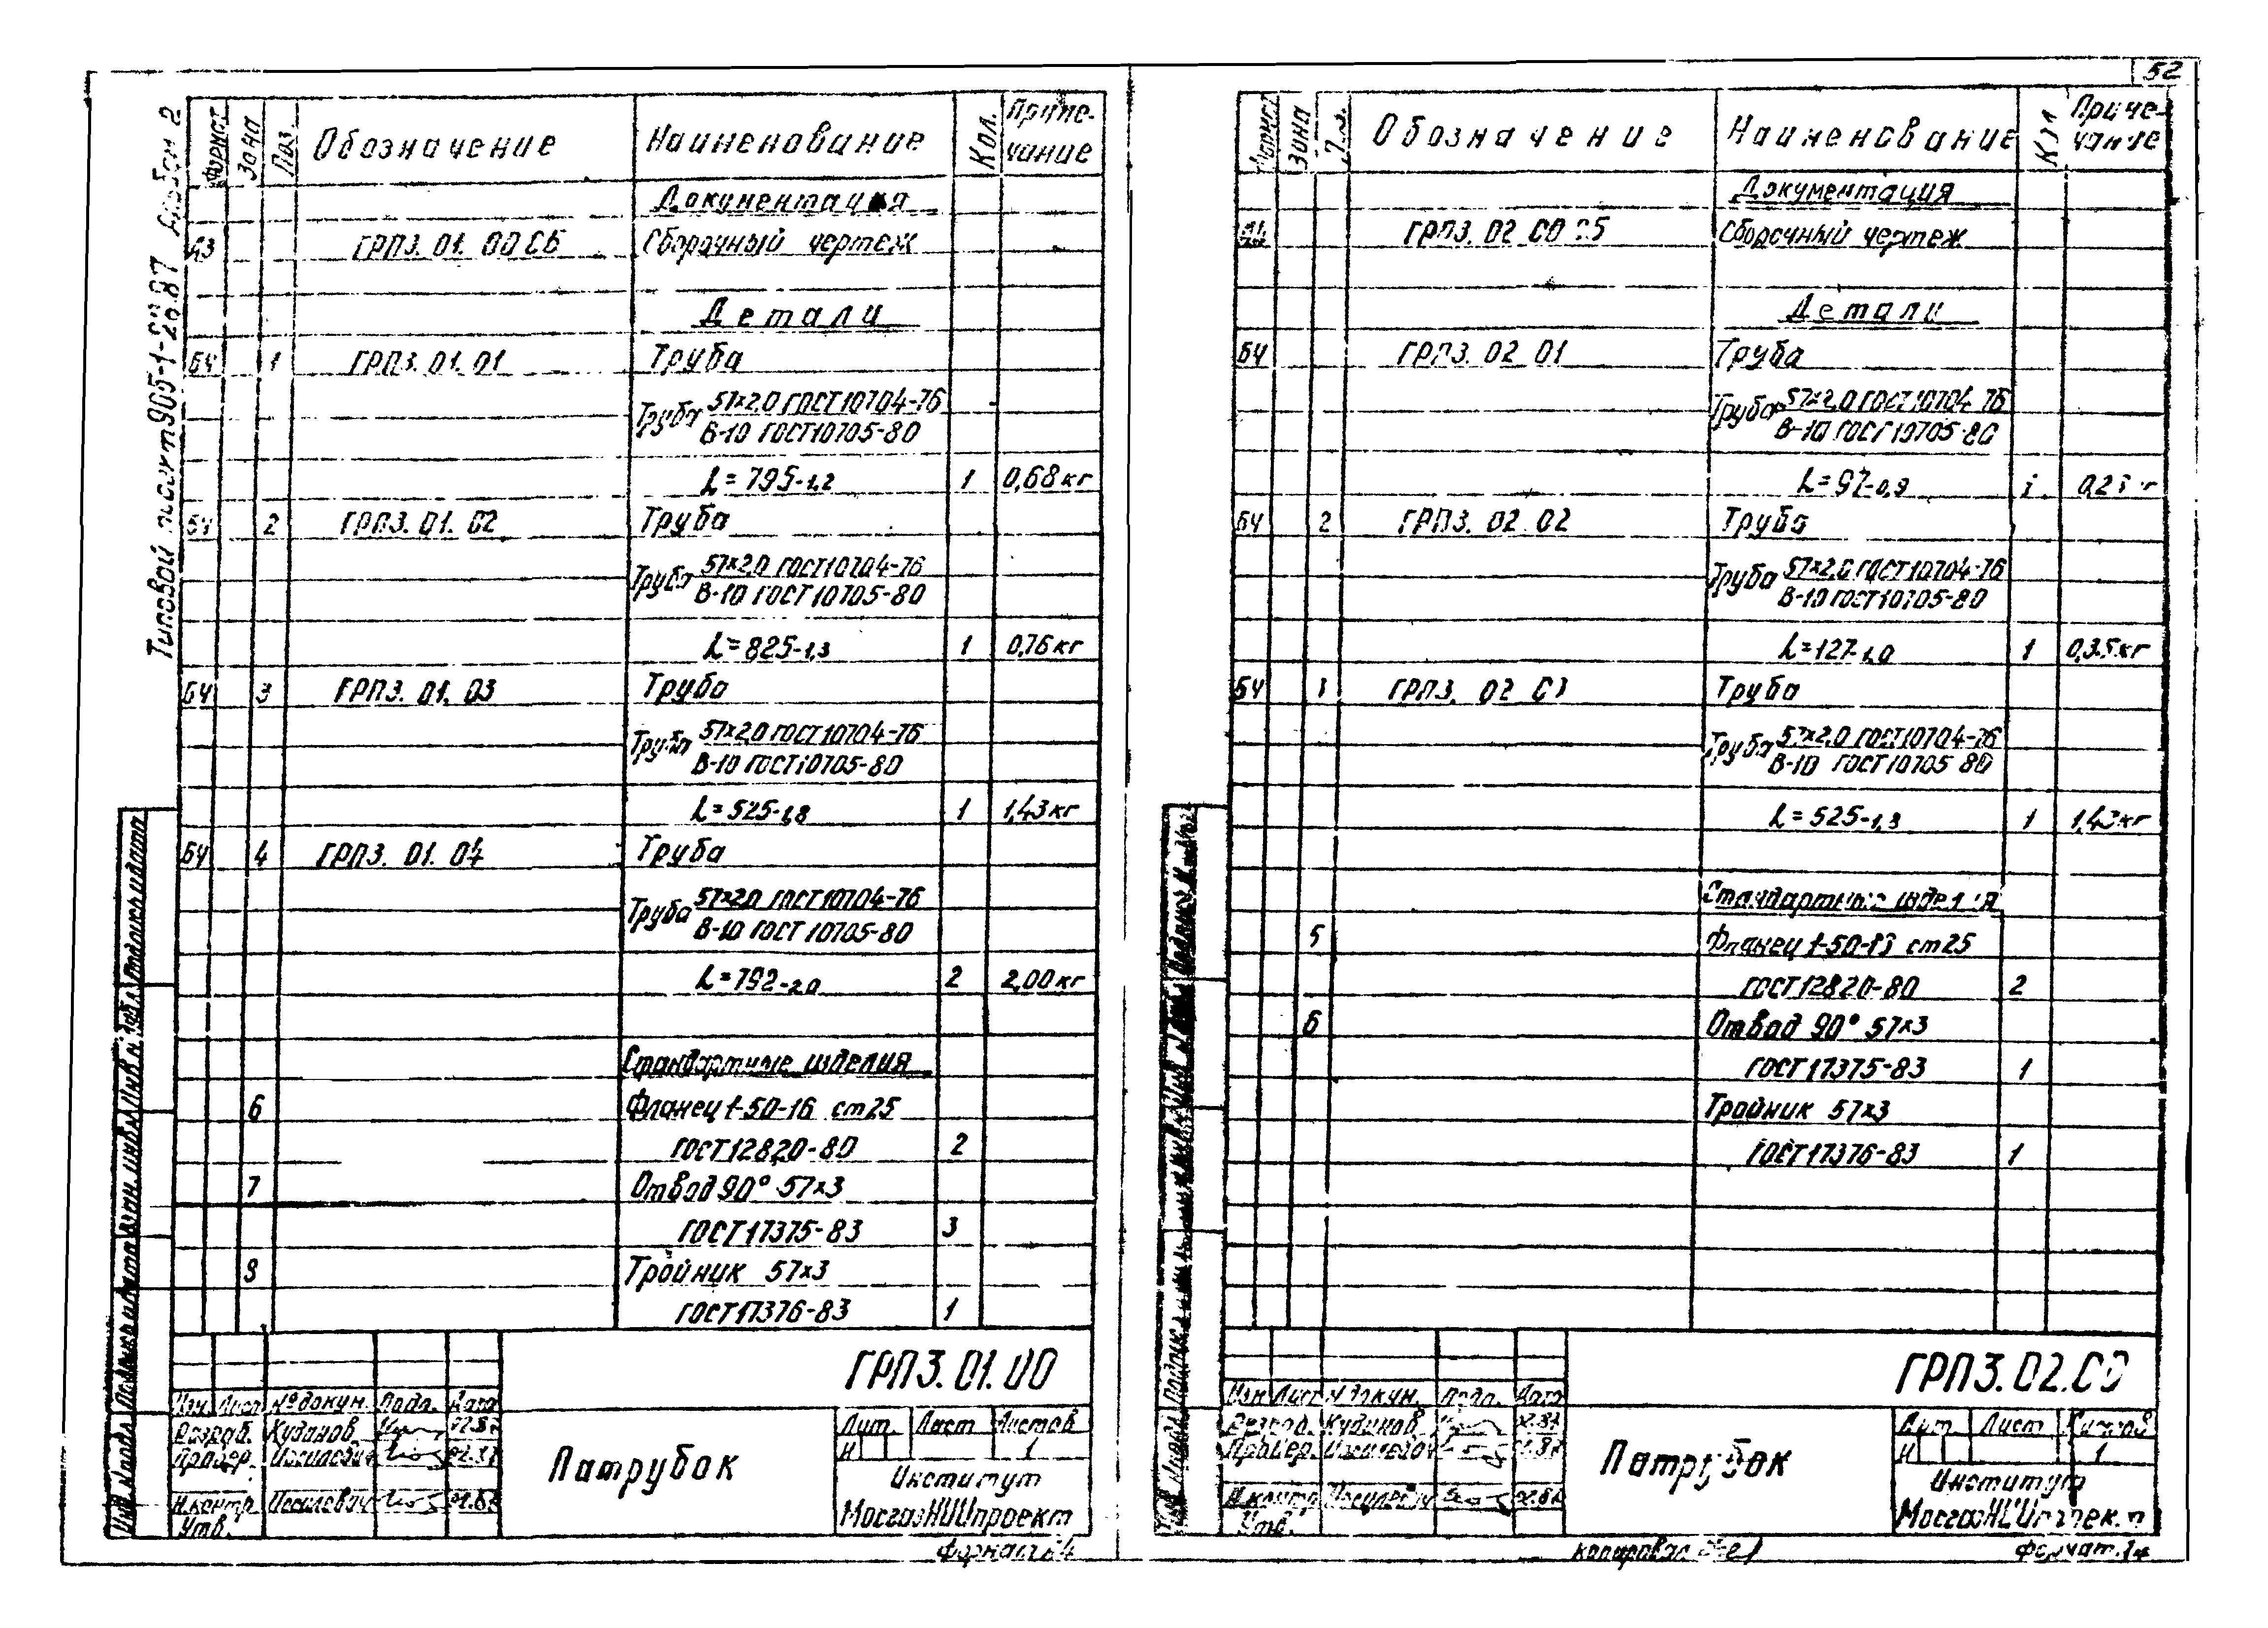 52
Типовой проект 905-1-28.87 Альбом 2
Формат Зона Поз. Обозначение Наименование Кол. Приме-
чание
Документация
А3 ГРПЗ. 01. 00 СБ Сборочный чертеж
Детали
БЧ 1 ГРПЗ. 01. 01 Труба
Труба 57×2,0 ГОСТ 10704-76
В-10 ГОСТ 10705-80
L=795-1,2 1 0,68 кг
БЧ 2 ГРПЗ. 01. 02 Труба
Труба 57×2,0 ГОСТ 10704-76
В-10 ГОСТ 10705-80
L=825-1,3 1 0,76 кг
БЧ 3 ГРПЗ. 01. 03 Труба
Труба 57×2,0 ГОСТ 10704-76
В-10 ГОСТ 10705-80
L=525-1,8 1 1,43 кг
БЧ 4 ГРПЗ. 01. 04 Труба
Труба 57×2,0 ГОСТ 10704-76
В-10 ГОСТ 10705-80
L=792-2,0 2 2,00 кг
Стандартные изделия
6 Фланец 1-50-16 ст25
ГОСТ 12820-80 2
7 Отвод 90° 57×3
ГОСТ 17375-83 3
8 Тройник 57×3
ГОСТ 17376-83 1
ГРПЗ.01.00
Изм. Лист № докум. Подп. Дата
Разраб. Кудинов
Провер.
Н.контр.
Утв.
Патрубок
Лит. Лист Листов
И 1
Институт
МосгазНИИпроект
Формат А4
Формат Зона Поз. Обозначение Наименование Кол Приме-
чание
Документация
ГРПЗ. 02 00 СБ Сборочный чертеж
Детали
БЧ ГРПЗ. 02 01 Труба
Труба 57×2,0 ГОСТ 10704-76
В-10 ГОСТ 10705-80
L=97-0,9 1
БЧ 2 ГРПЗ. 02 02 Труба
Труба 57×2,0 ГОСТ 10704-76
В-10 ГОСТ 10705-80
L=127-1,0 1 0,35 кг
БЧ 3 ГРПЗ. 02 03 Труба
Труба 57×2,0 ГОСТ 10704-76
В-10 ГОСТ 10705-80
L=525-1,3 1 1,43 кг
Стандартные изделия
5 Фланец 1-50-16 ст25
ГОСТ 12820-80 2
6 Отвод 90° 57×3
ГОСТ 17375-83 1
Тройник 57×3
ГОСТ 17376-83 1
ГРПЗ.02.00
Изм Лист № докум. Подп. Дата
Разраб. Кудинов
Провер.
Н.контр
Утв.
Патрубок
Лит. Лист Листов
И 1
Институт
МосгазНИИпроект
Копировал
Формат А4